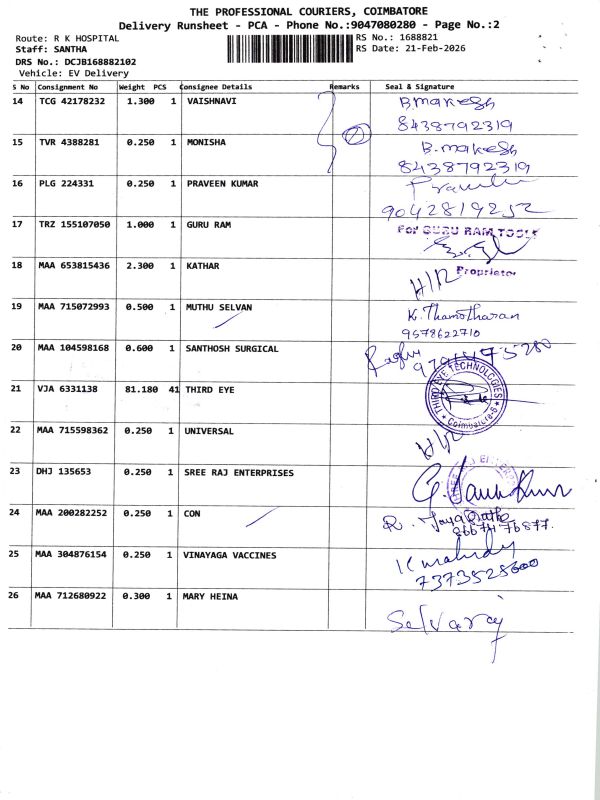 THE PROFESSIONAL COURIERS, COIMBATORE
Delivery Runsheet - PCA - Phone No.:9047080280 - Page No.:2
Route: R K HOSPITAL
RS No.: 1688821
Staff: SANTHA
RS Date: 21-Feb-2026
DRS No.: DCJB168882102
Vehicle: EV Delivery
S No Consignment No Weight PCS Consignee Details Remarks Seal & Signature
14 TCG 42178232 1.300 1 VAISHNAVI B.makesh
8438792319
15 TVR 4388281 0.250 1 MONISHA B.makesh
8438792319
16 PLG 224331 0.250 1 PRAVEEN KUMAR
9042819252
17 TRZ 155107050 1.000 1 GURU RAM For GURU RAM TOOLS
Proprietor
18 MAA 653815436 2.300 1 KATHAR H/R
19 MAA 715072993 0.500 1 MUTHU SELVAN K.Thamotharan
9578622710
20 MAA 104598168 0.600 1 SANTHOSH SURGICAL Raghu
21 VJA 6331138 81.180 41 THIRD EYE THIRD EYE TECHNOLOGIES Coimbatore-6
22 MAA 715598362 0.250 1 UNIVERSAL H/R
23 DHJ 135653 0.250 1 SREE RAJ ENTERPRISES
24 MAA 200282252 0.250 1 CON
25 MAA 304876154 0.250 1 VINAYAGA VACCINES
26 MAA 712680922 0.300 1 MARY HEINA Selvaraj